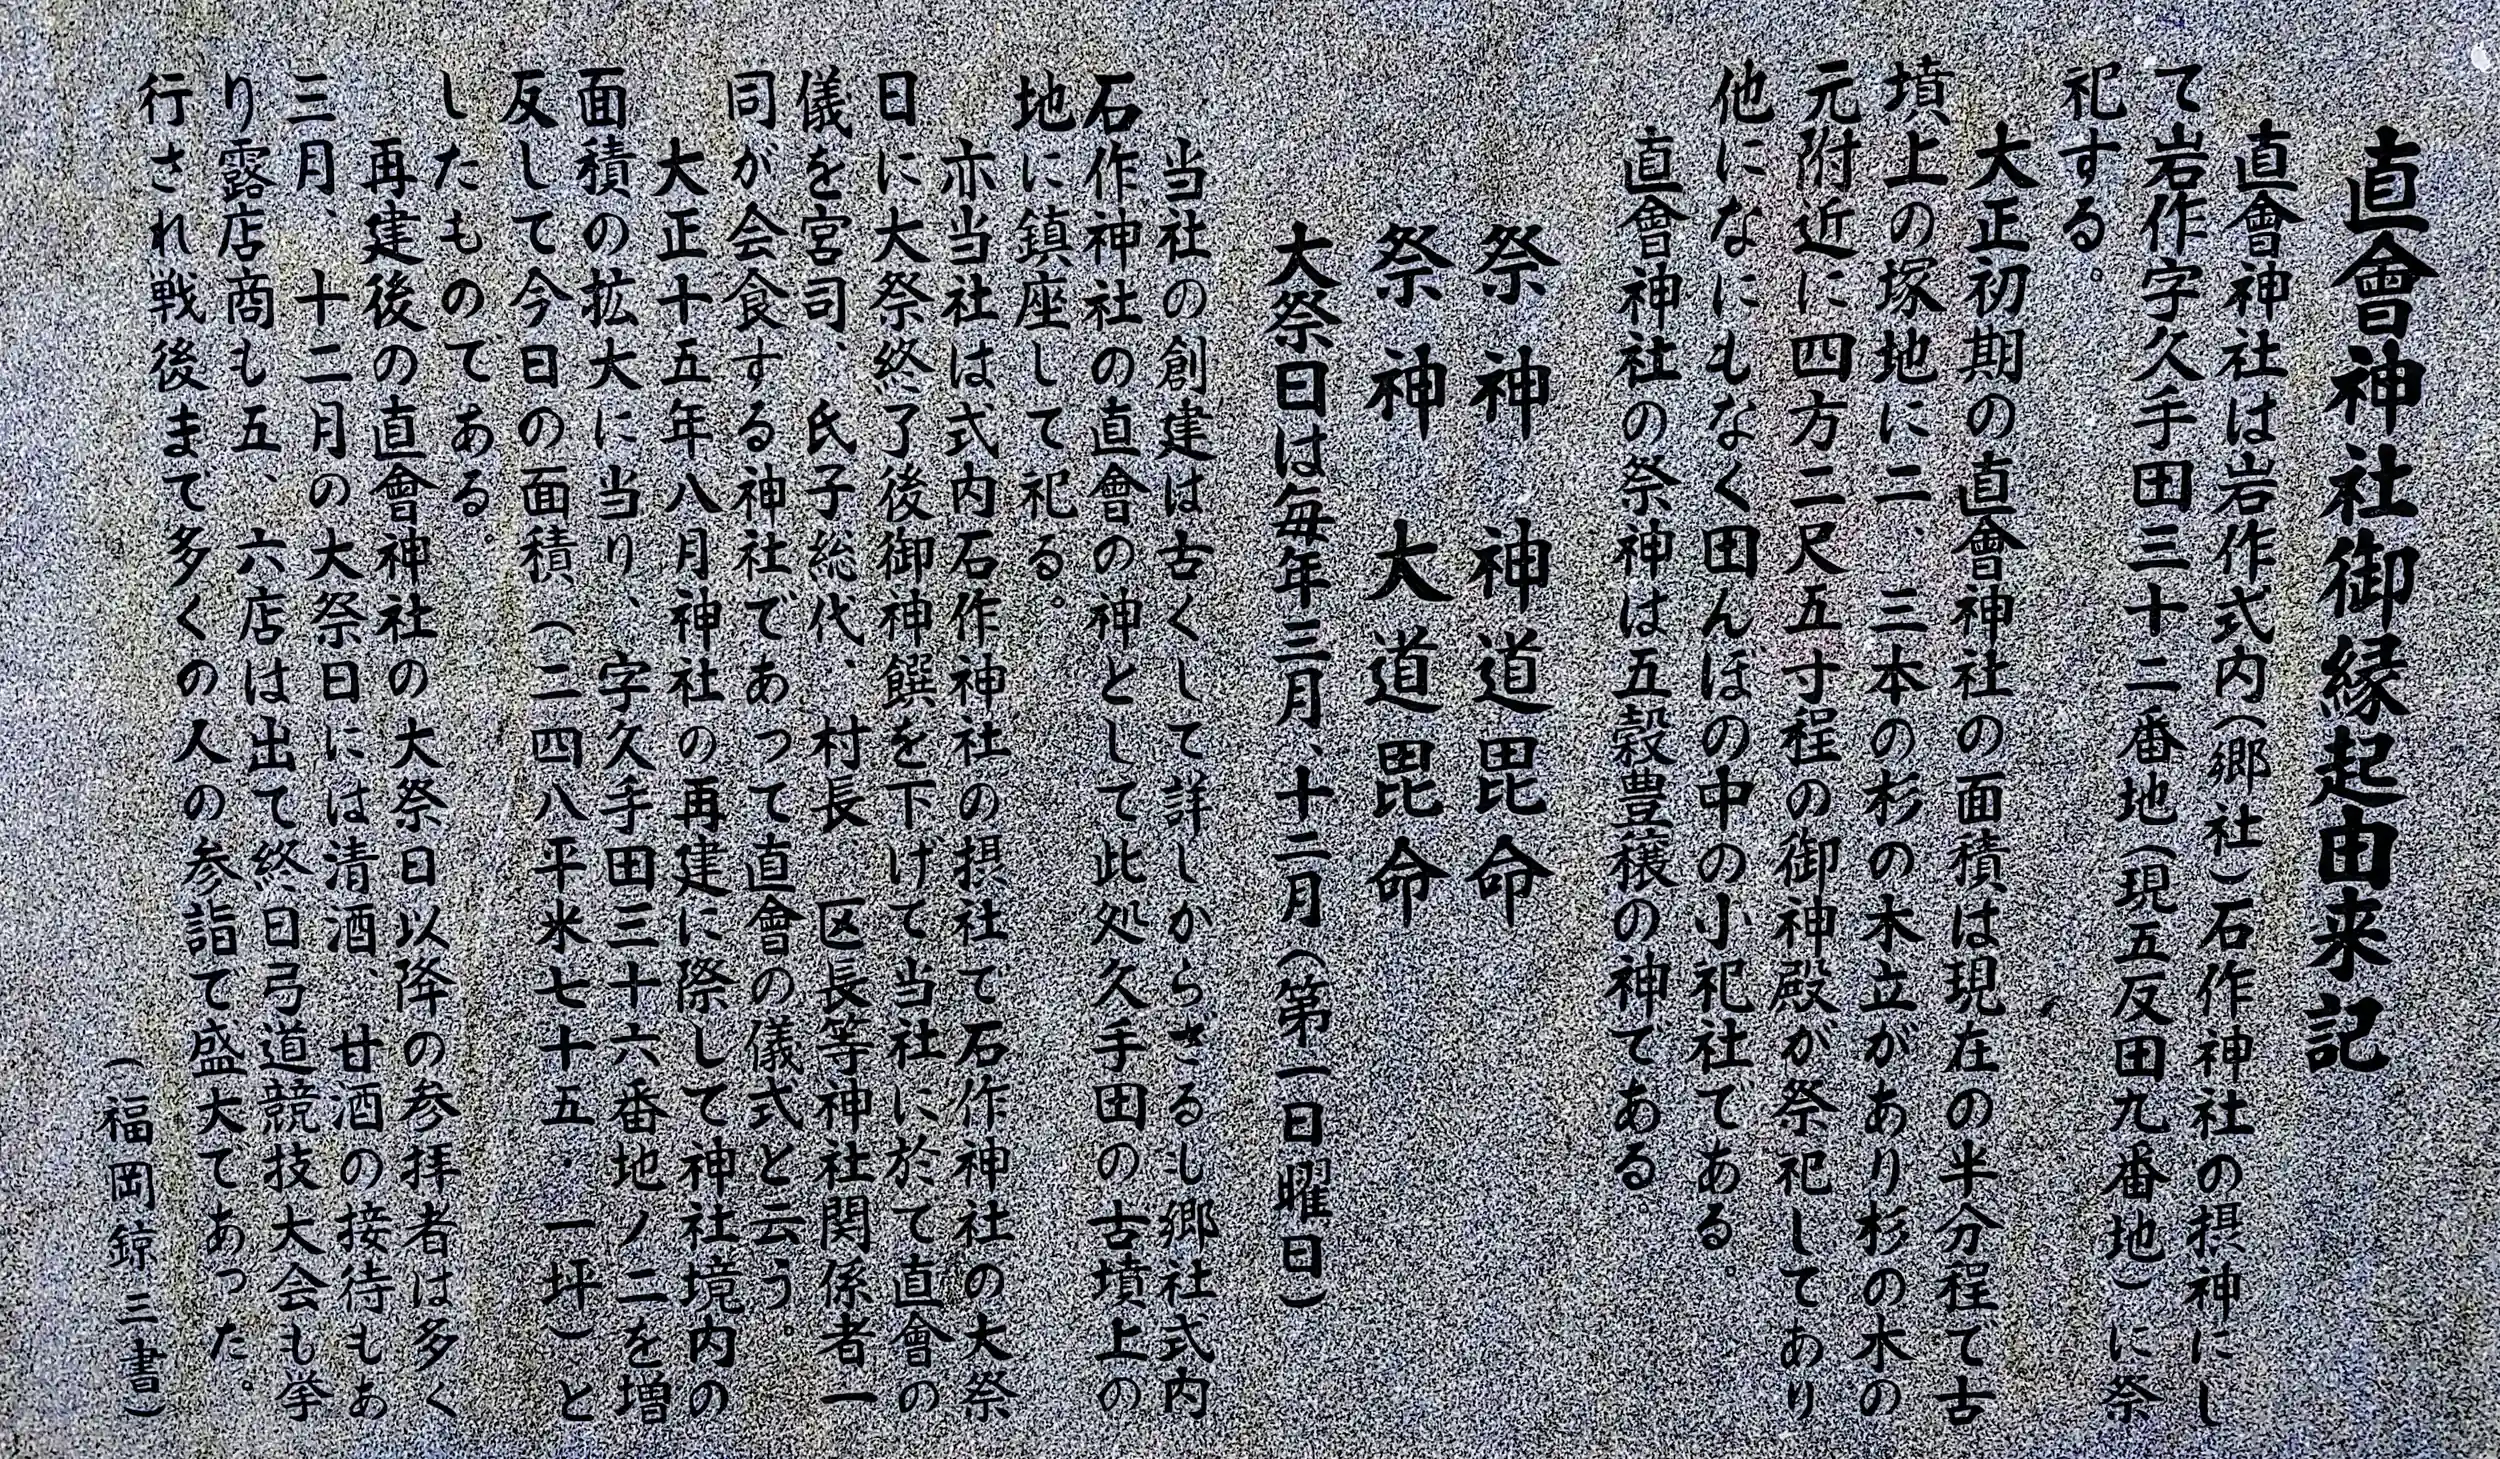 直會神社御縁起由来記
直會神社は岩作式内(郷社)石作神社の摂神にし
て岩作字久手田三十二番地(現五反田九番地)に祭
祀する。
大正初期の直會神社の面積は現在の半分程で古
墳上の塚地に二、三本の杉の木立があり杉の木の
元附近に四方二尺五寸程の御神殿が祭祀してあり
他になにもなく田んぼの中の小祀社である。
直會神社の祭神は五穀豊穣の神である。
祭神 神道毘命
祭神 大道毘命
大祭日は毎年三月、十二月(第一日曜日)
当社の創建は古くして詳しからざるし郷社式内
石作神社の直會の神として此処久手田の古墳上の
地に鎮座して祀る。
亦当社は式内石作神社の摂社て石作神社の大祭
日に大祭終了後御神饌を下げて当社に於て直會の
儀を宮司、氏子総代、村長、区長等神社関係者一
司が会食する神社であって直會の儀式と云う。
大正十五年八月神社の再建に際して神社境内の
面積の拡大に当り、字久手田三十六番地ノ二を増
反して今日の面積、(二四八平米七十五・一坪)と
したものてある。
再建後の直會神社の大祭日以降の参拝者は多く
三月、十二月の大祭日には清酒、甘酒の接待もあ
り露店商も五、六店は出て終日弓道競技大会も挙
行され戦後まて多くの人の参詣て盛大てあった。
(福岡錞三書)